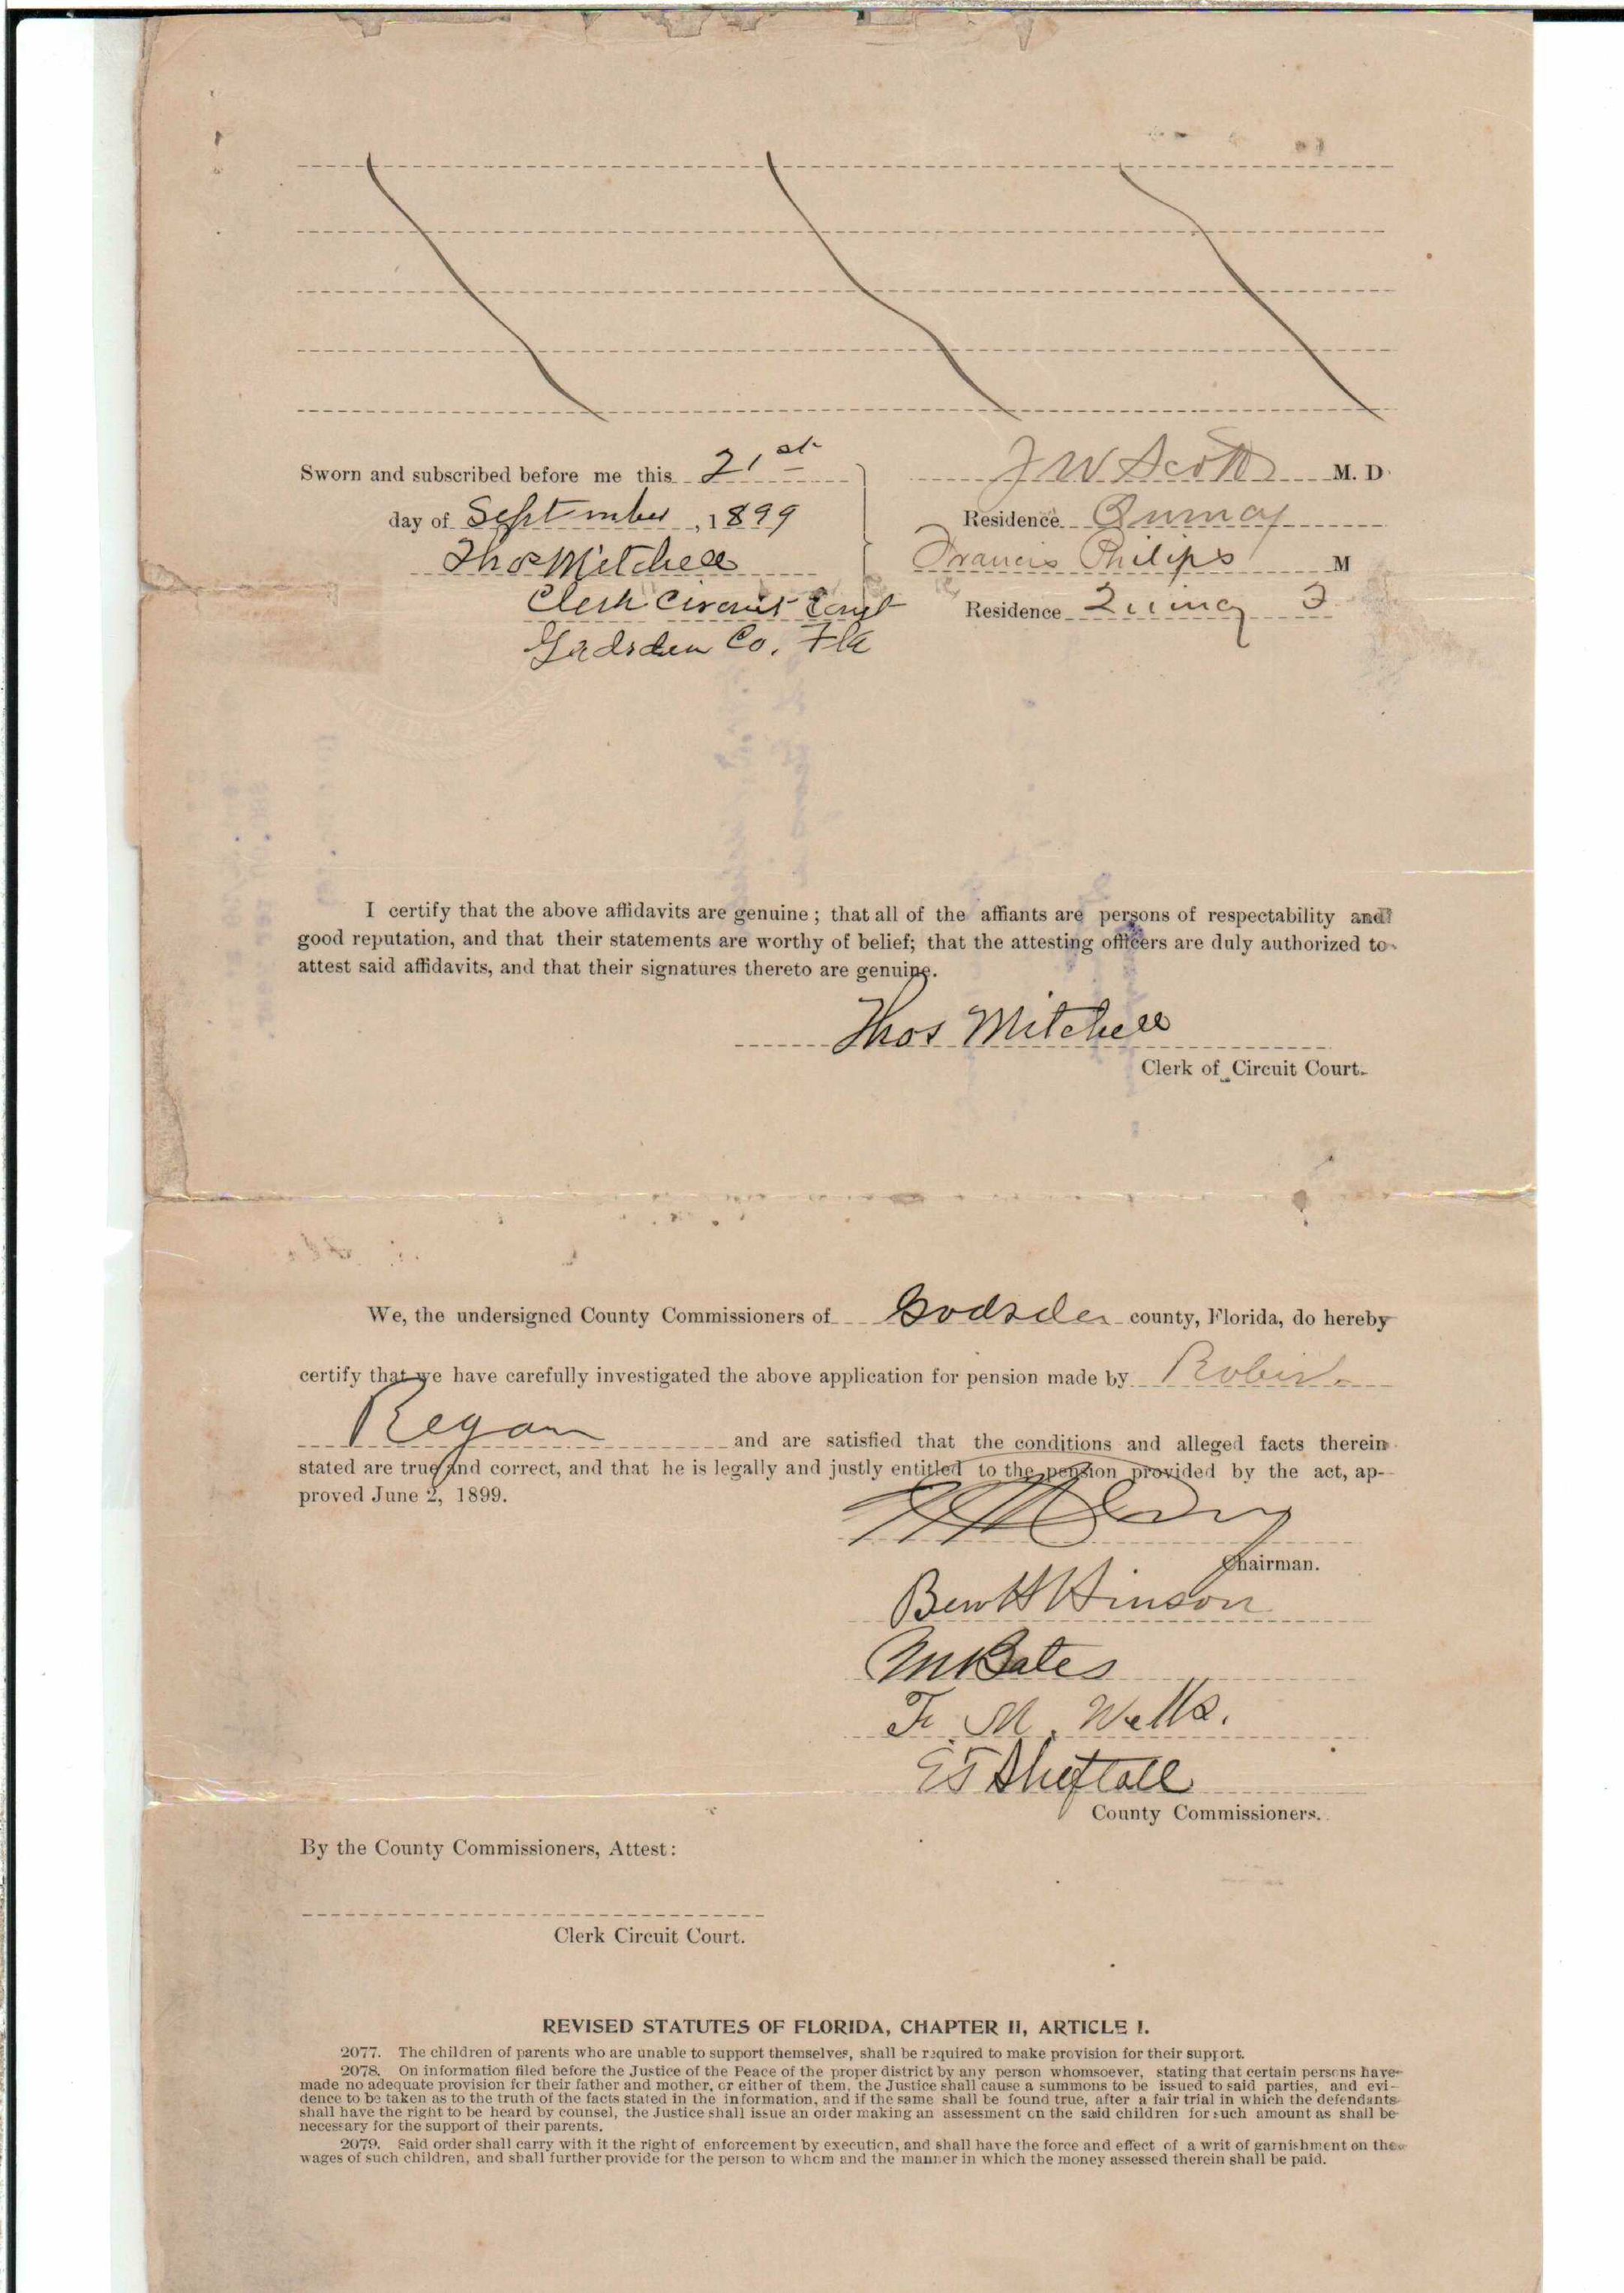 Sworn and subscribed before me this 21st
day of September, 1899
Thos Mitchell
Clerk Circuit Court
Gadsden Co. Fla
J W Scott M. D.
Residence Quincy
Francis Philips M
Residence Quincy F
I certify that the above affidavits are genuine; that all of the affiants are persons of respectability and
good reputation, and that their statements are worthy of belief; that the attesting officers are duly authorized to
attest said affidavits, and that their signatures thereto are genuine.
Thos Mitchell
Clerk of Circuit Court.
We, the undersigned County Commissioners of Gadsden county, Florida, do hereby
certify that we have carefully investigated the above application for pension made by
Regan and are satisfied that the conditions and alleged facts therein
stated are true and correct, and that he is legally and justly entitled to the pension provided by the act, ap-
proved June 2, 1899.
Chairman.
Ben H Hinson
Bates
F. M. Wells.
E T Sheftall
County Commissioners.
By the County Commissioners, Attest:
Clerk Circuit Court.
REVISED STATUTES OF FLORIDA, CHAPTER II, ARTICLE I.
2077. The children of parents who are unable to support themselves, shall be required to make provision for their support.
2078. On information filed before the Justice of the Peace of the proper district by any person whomsoever, stating that certain persons have
made no adequate provision for their father and mother, or either of them, the Justice shall cause a summons to be issued to said parties, and evi-
dence to be taken as to the truth of the facts stated in the information, and if the same shall be found true, after a fair trial in which the defendants
shall have the right to be heard by counsel, the Justice shall issue an order making an assessment on the said children for such amount as shall be
necessary for the support of their parents.
2079. Said order shall carry with it the right of enforcement by execution, and shall have the force and effect of a writ of garnishment on the
wages of such children, and shall further provide for the person to whom and the manner in which the money assessed therein shall be paid.